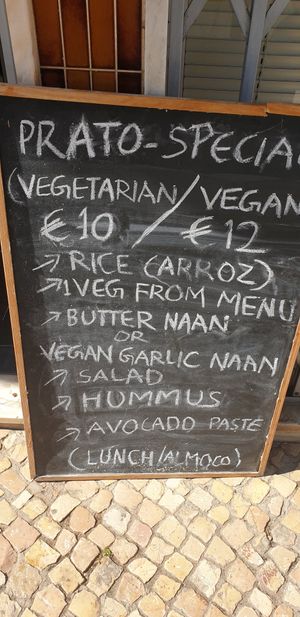 PRATO-SPECIAL
(VEGETARIAN / VEGAN
€10 / €12
↗ RICE (ARROZ)
↗ 1 VEG FROM MENU
↗ BUTTER NAAN
OR
VEGAN GARLIC NAAN
↗ SALAD
↗ HUMMUS
↗ AVOCADO PASTE
(LUNCH/ALMOCO)